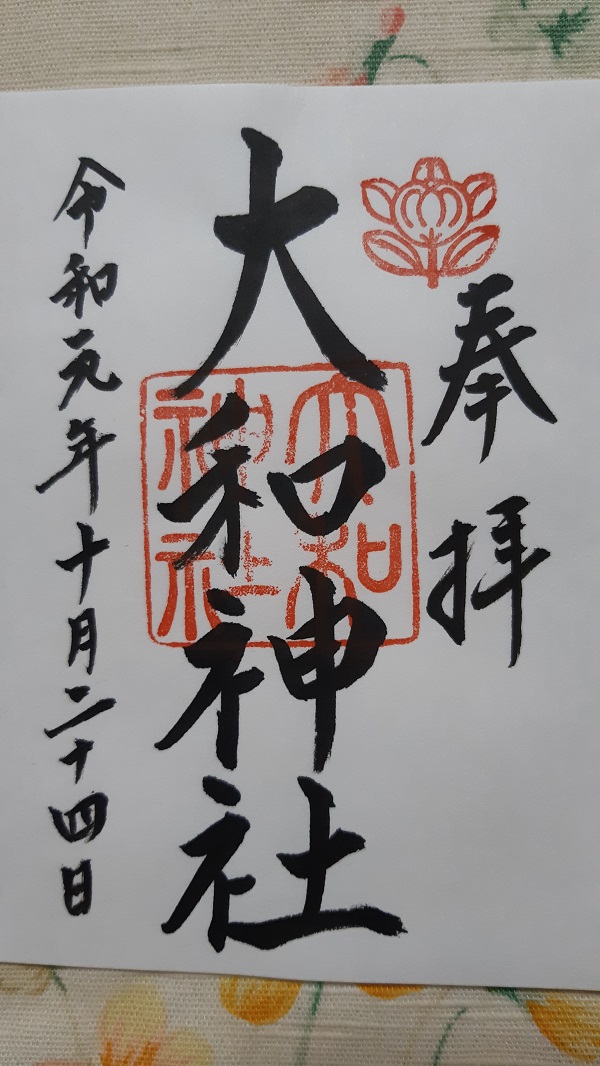 奉拝
大和神社
大和神社
令和元年十月二十四日